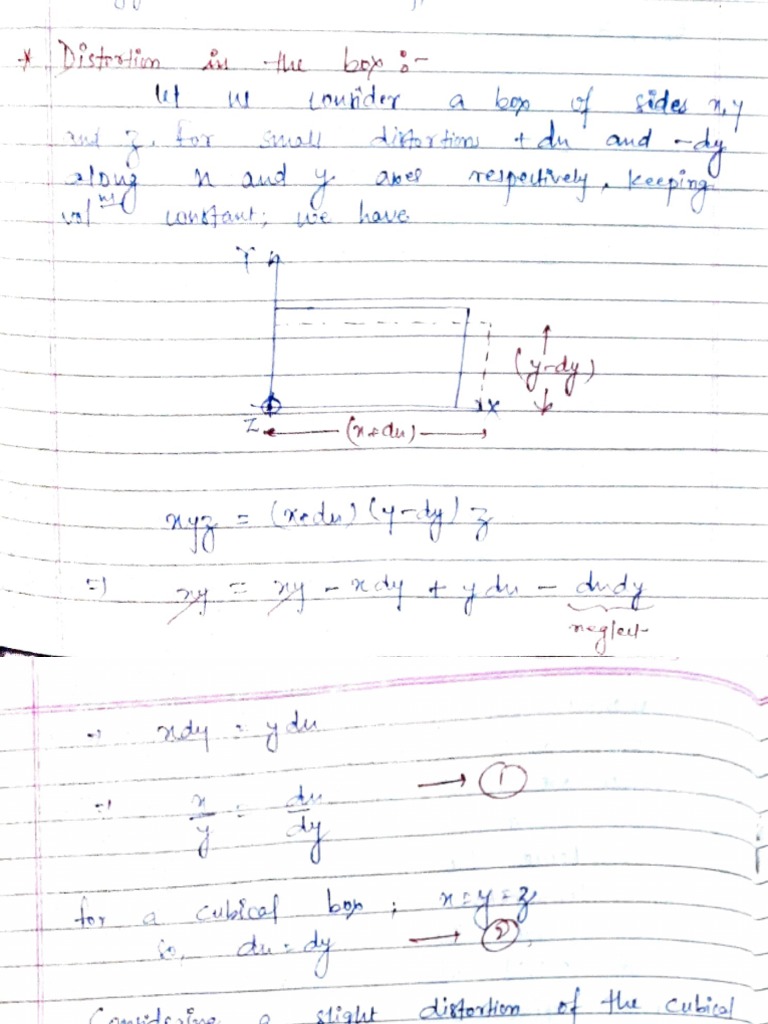 * Distortion in the box :-
let us consider a box of sides x, y
and z. for small distortions +dx and -dy
along x and y axes respectively, keeping
vol^me constant; we have
Y
(y-dy)
Z X
(x+dx)
xyz = (x+dx) (y-dy) z
=> xy = xy - xdy + ydx - dxdy
neglect
=> xdy = ydx
=> x/y = dx/dy → ①
for a cubical box ; x=y=z
so, dx = dy → ②
Considering a slight distortion of the cubical